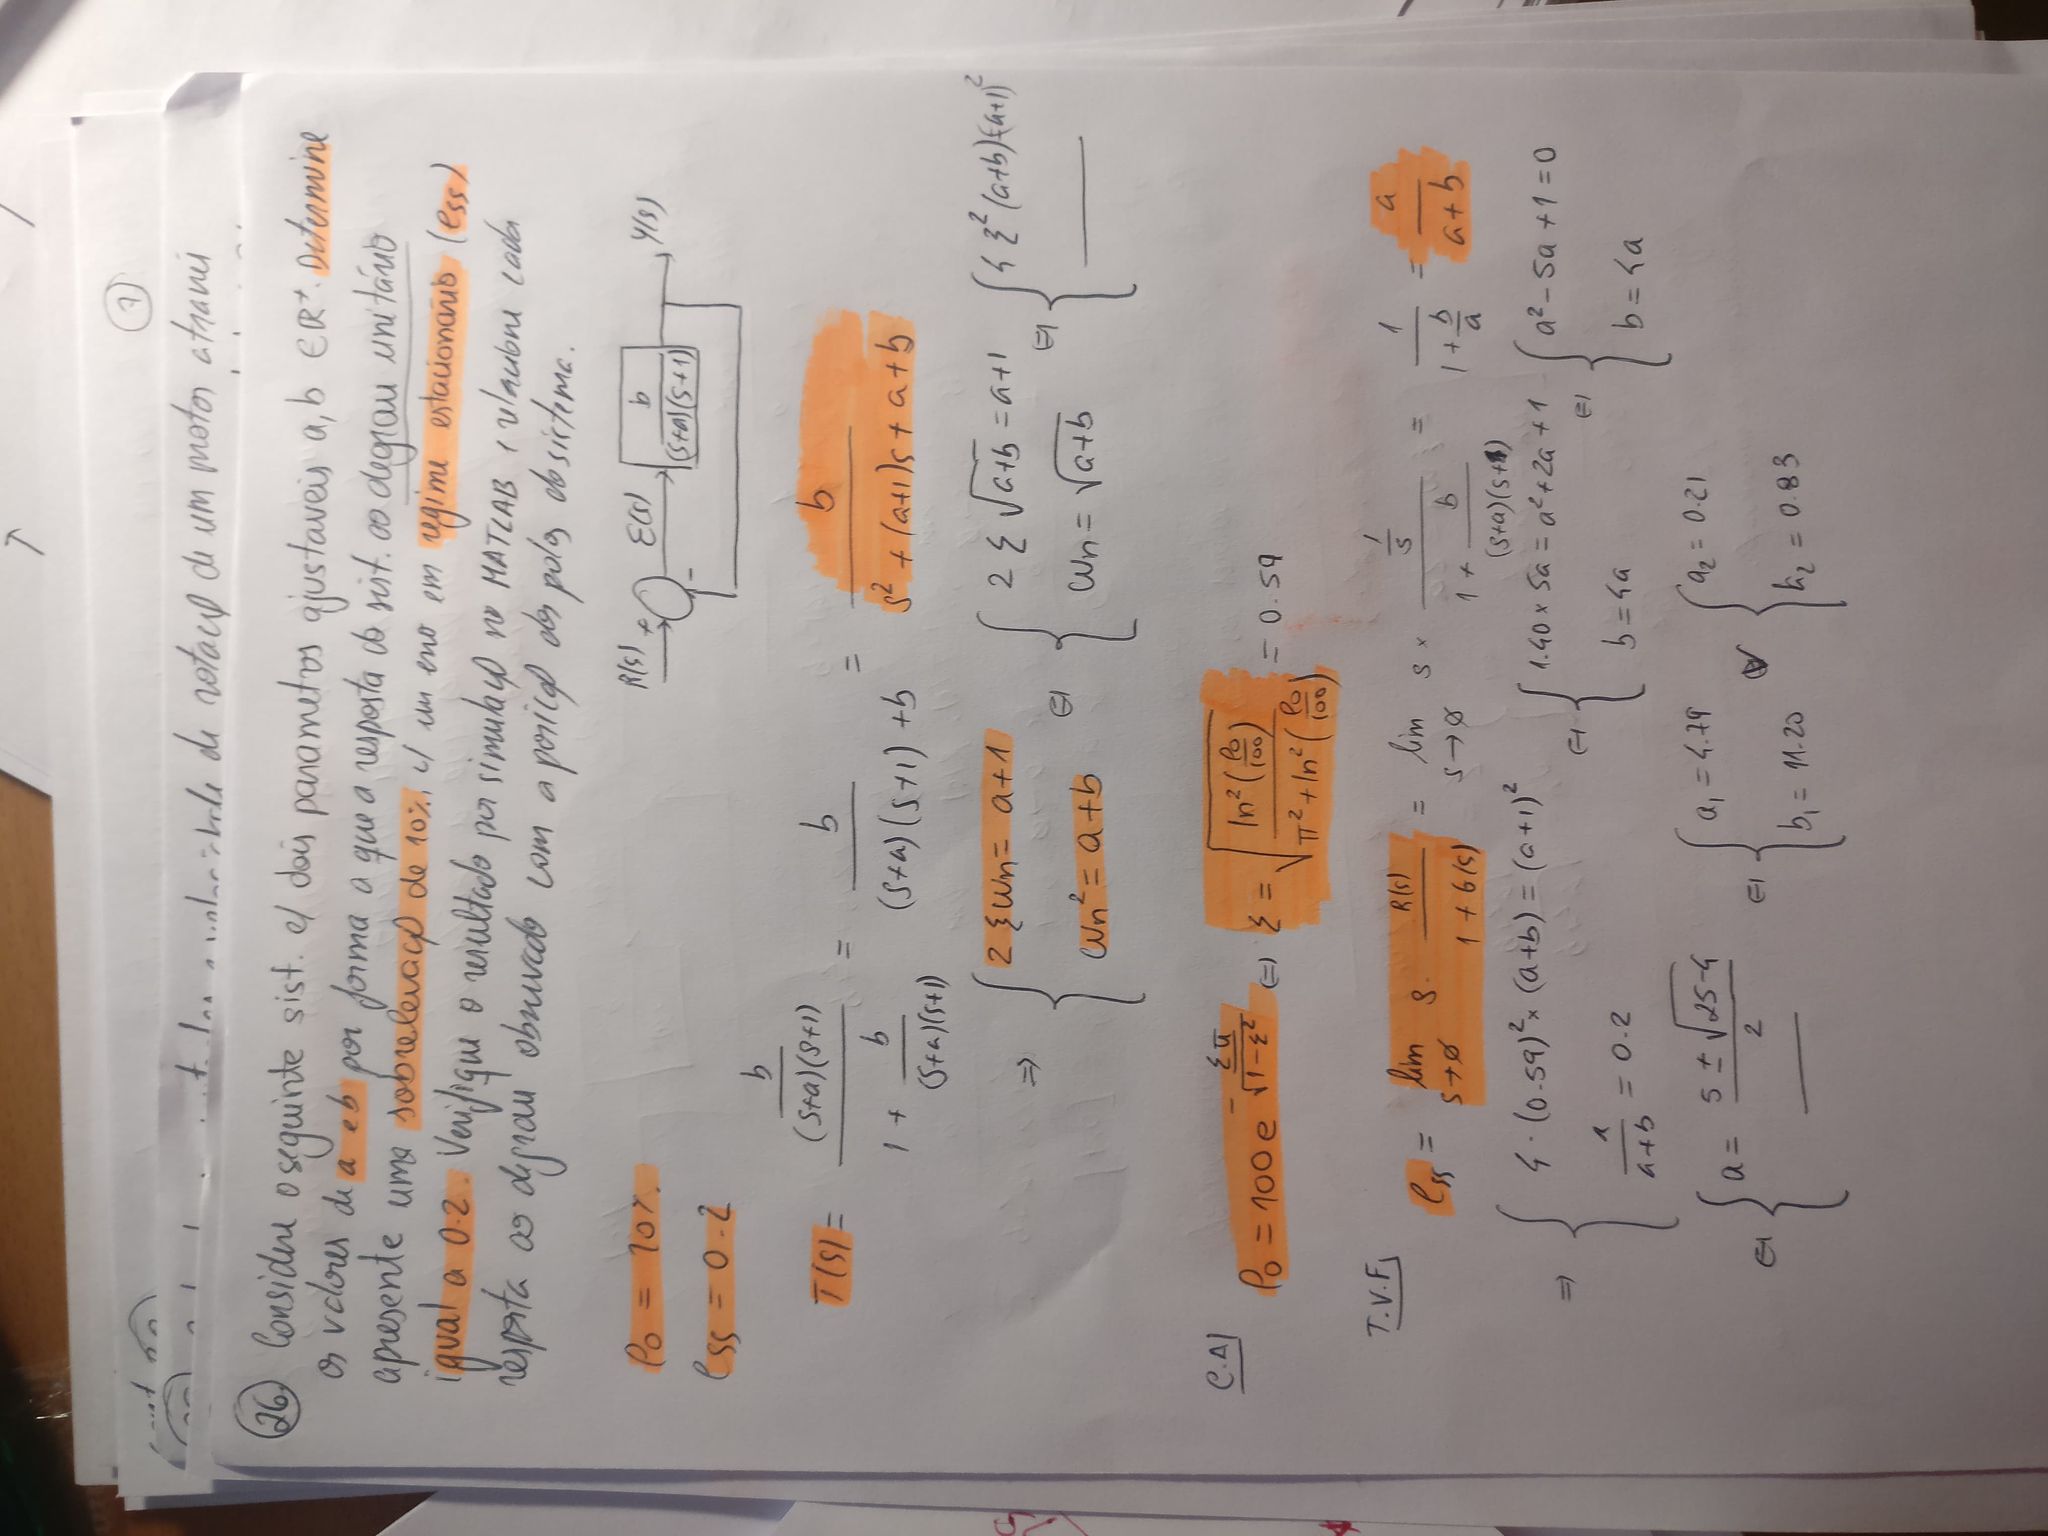 7
velocidade de rotação de um motor através
26. Considere o seguinte sist. c/ dois parametros ajustaveis a, b ∈ ℝ⁺. Determine
os valores de a e b por forma a que a resposta do sist. ao degrau unitário
apresente uma sobrelevação de 10%, c/ um erro em regime estacionário (ess)
igual a 0.2. Verifique o resultado por simulação no MATLAB e relacione cada
resposta ao degrau observado com a posição dos polos do sistema.
Po = 10%
R(s) + - E(s) b/((s+a)(s+1)) Y(s)
ess = 0.2
T(s) = (b/((s+a)(s+1)))/(1 + b/((s+a)(s+1))) = b/((s+a)(s+1)+b) = b/(s² + (a+1)s + a+b)
⇒ { 2ξωn = a+1 ⇔ { 2ξ√(a+b) = a+1 ⇔ { 4ξ²(a+b)=(a+1)²
ωn² = a+b ωn = √(a+b) ___
C.A| Po = 100e^(-ξπ/√(1-ξ²)) ⇔ ξ = √(ln²(Po/100)/(π²+ln²(Po/100))) = 0.59
T.V.F| ess = lim s→0 s· R(s)/(1+G(s)) = lim s→0 s × (1/s)/(1 + b/((s+a)(s+1))) = 1/(1+b/a) = a/(a+b)
⇒ { 4·(0.59)² × (a+b) = (a+1)² ⇔ { 1.40 × 5a = a²+2a+1 ⇔ { a²-5a+1=0
1/(a+b) = 0.2 b=4a b=4a
⇔ { a = (5 ± √(25-4))/2 ⇔ { a₁ = 4.79 ∨ { a₂ = 0.21
___ b₁ = 11.20 b₂ = 0.83